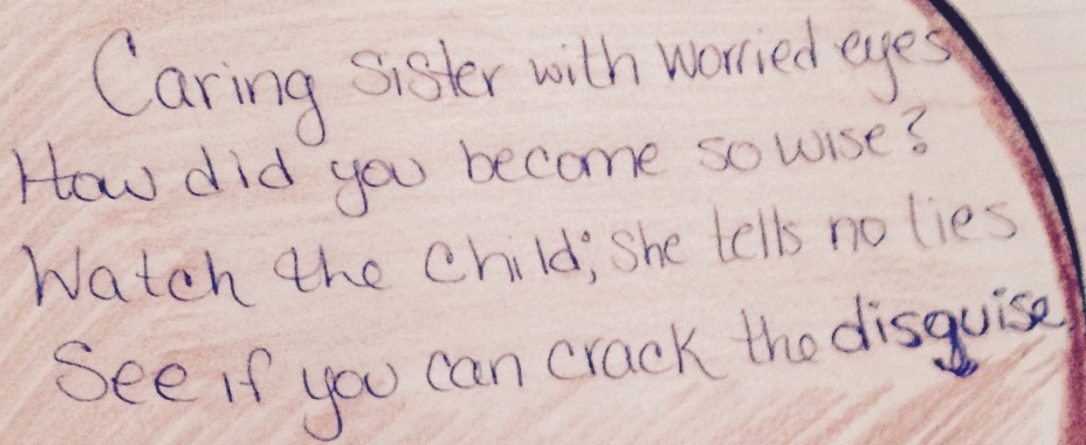 Caring Sister with worried eyes
How did you become so wise?
Watch the Child; She tells no lies
See if you can crack the disguise